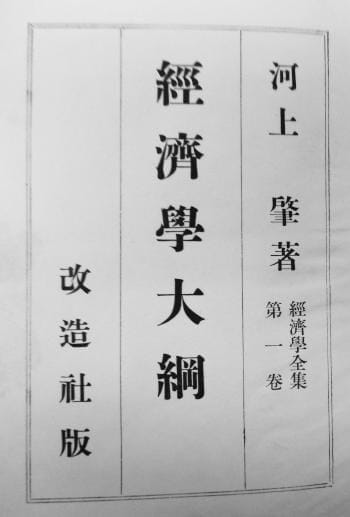 河上 肇著
經濟學全集
第一卷
經濟學大綱
改造社版